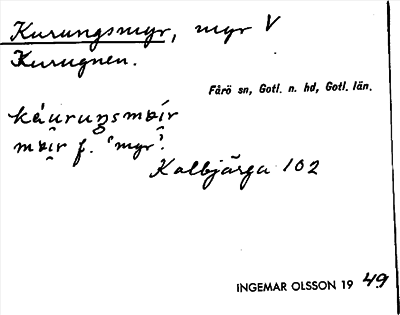 Kurungsmyr, myr V
Kurugnen.
Fårö sn, Gotl. n. hd, Gotl. län.
káuruŋsmɒír
mɒir f. 'myr'.
Kalbjärga 102
INGEMAR OLSSON 19 49